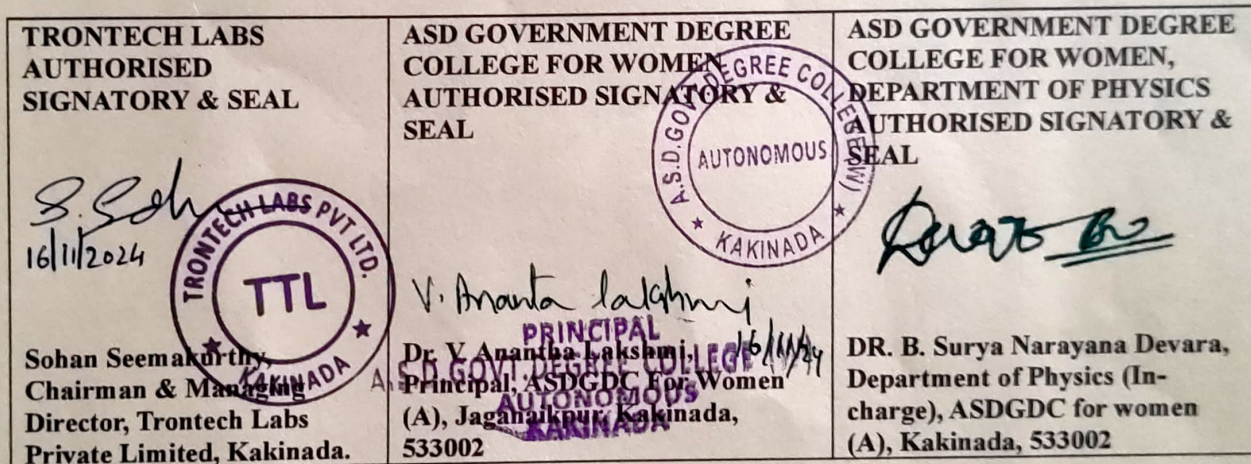 TRONTECH LABS
AUTHORISED
SIGNATORY & SEAL
S. Soh
16/11/2024
TRONTECH LABS PVT LTD.
TTL
KAKINADA
Sohan Seemakurthy,
Chairman & Managing
Director, Trontech Labs
Private Limited, Kakinada.
ASD GOVERNMENT DEGREE
COLLEGE FOR WOMEN
AUTHORISED SIGNATORY &
SEAL
A.S.D.GOVT.DEGREE COLLEGE(W)
AUTONOMOUS
KAKINADA
V. Ananta lakshmi
16/11/24
PRINCIPAL
A.S.D.GOVT.DEGREE COLLEGE
AUTONOMOUS
KAKINADA
Dr. V. Anantha Lakshmi,
Principal, ASDGDC For Women
(A), Jaganaikpur, Kakinada,
533002
ASD GOVERNMENT DEGREE
COLLEGE FOR WOMEN,
DEPARTMENT OF PHYSICS
AUTHORISED SIGNATORY &
SEAL
DR. B. Surya Narayana Devara,
Department of Physics (In-
charge), ASDGDC for women
(A), Kakinada, 533002